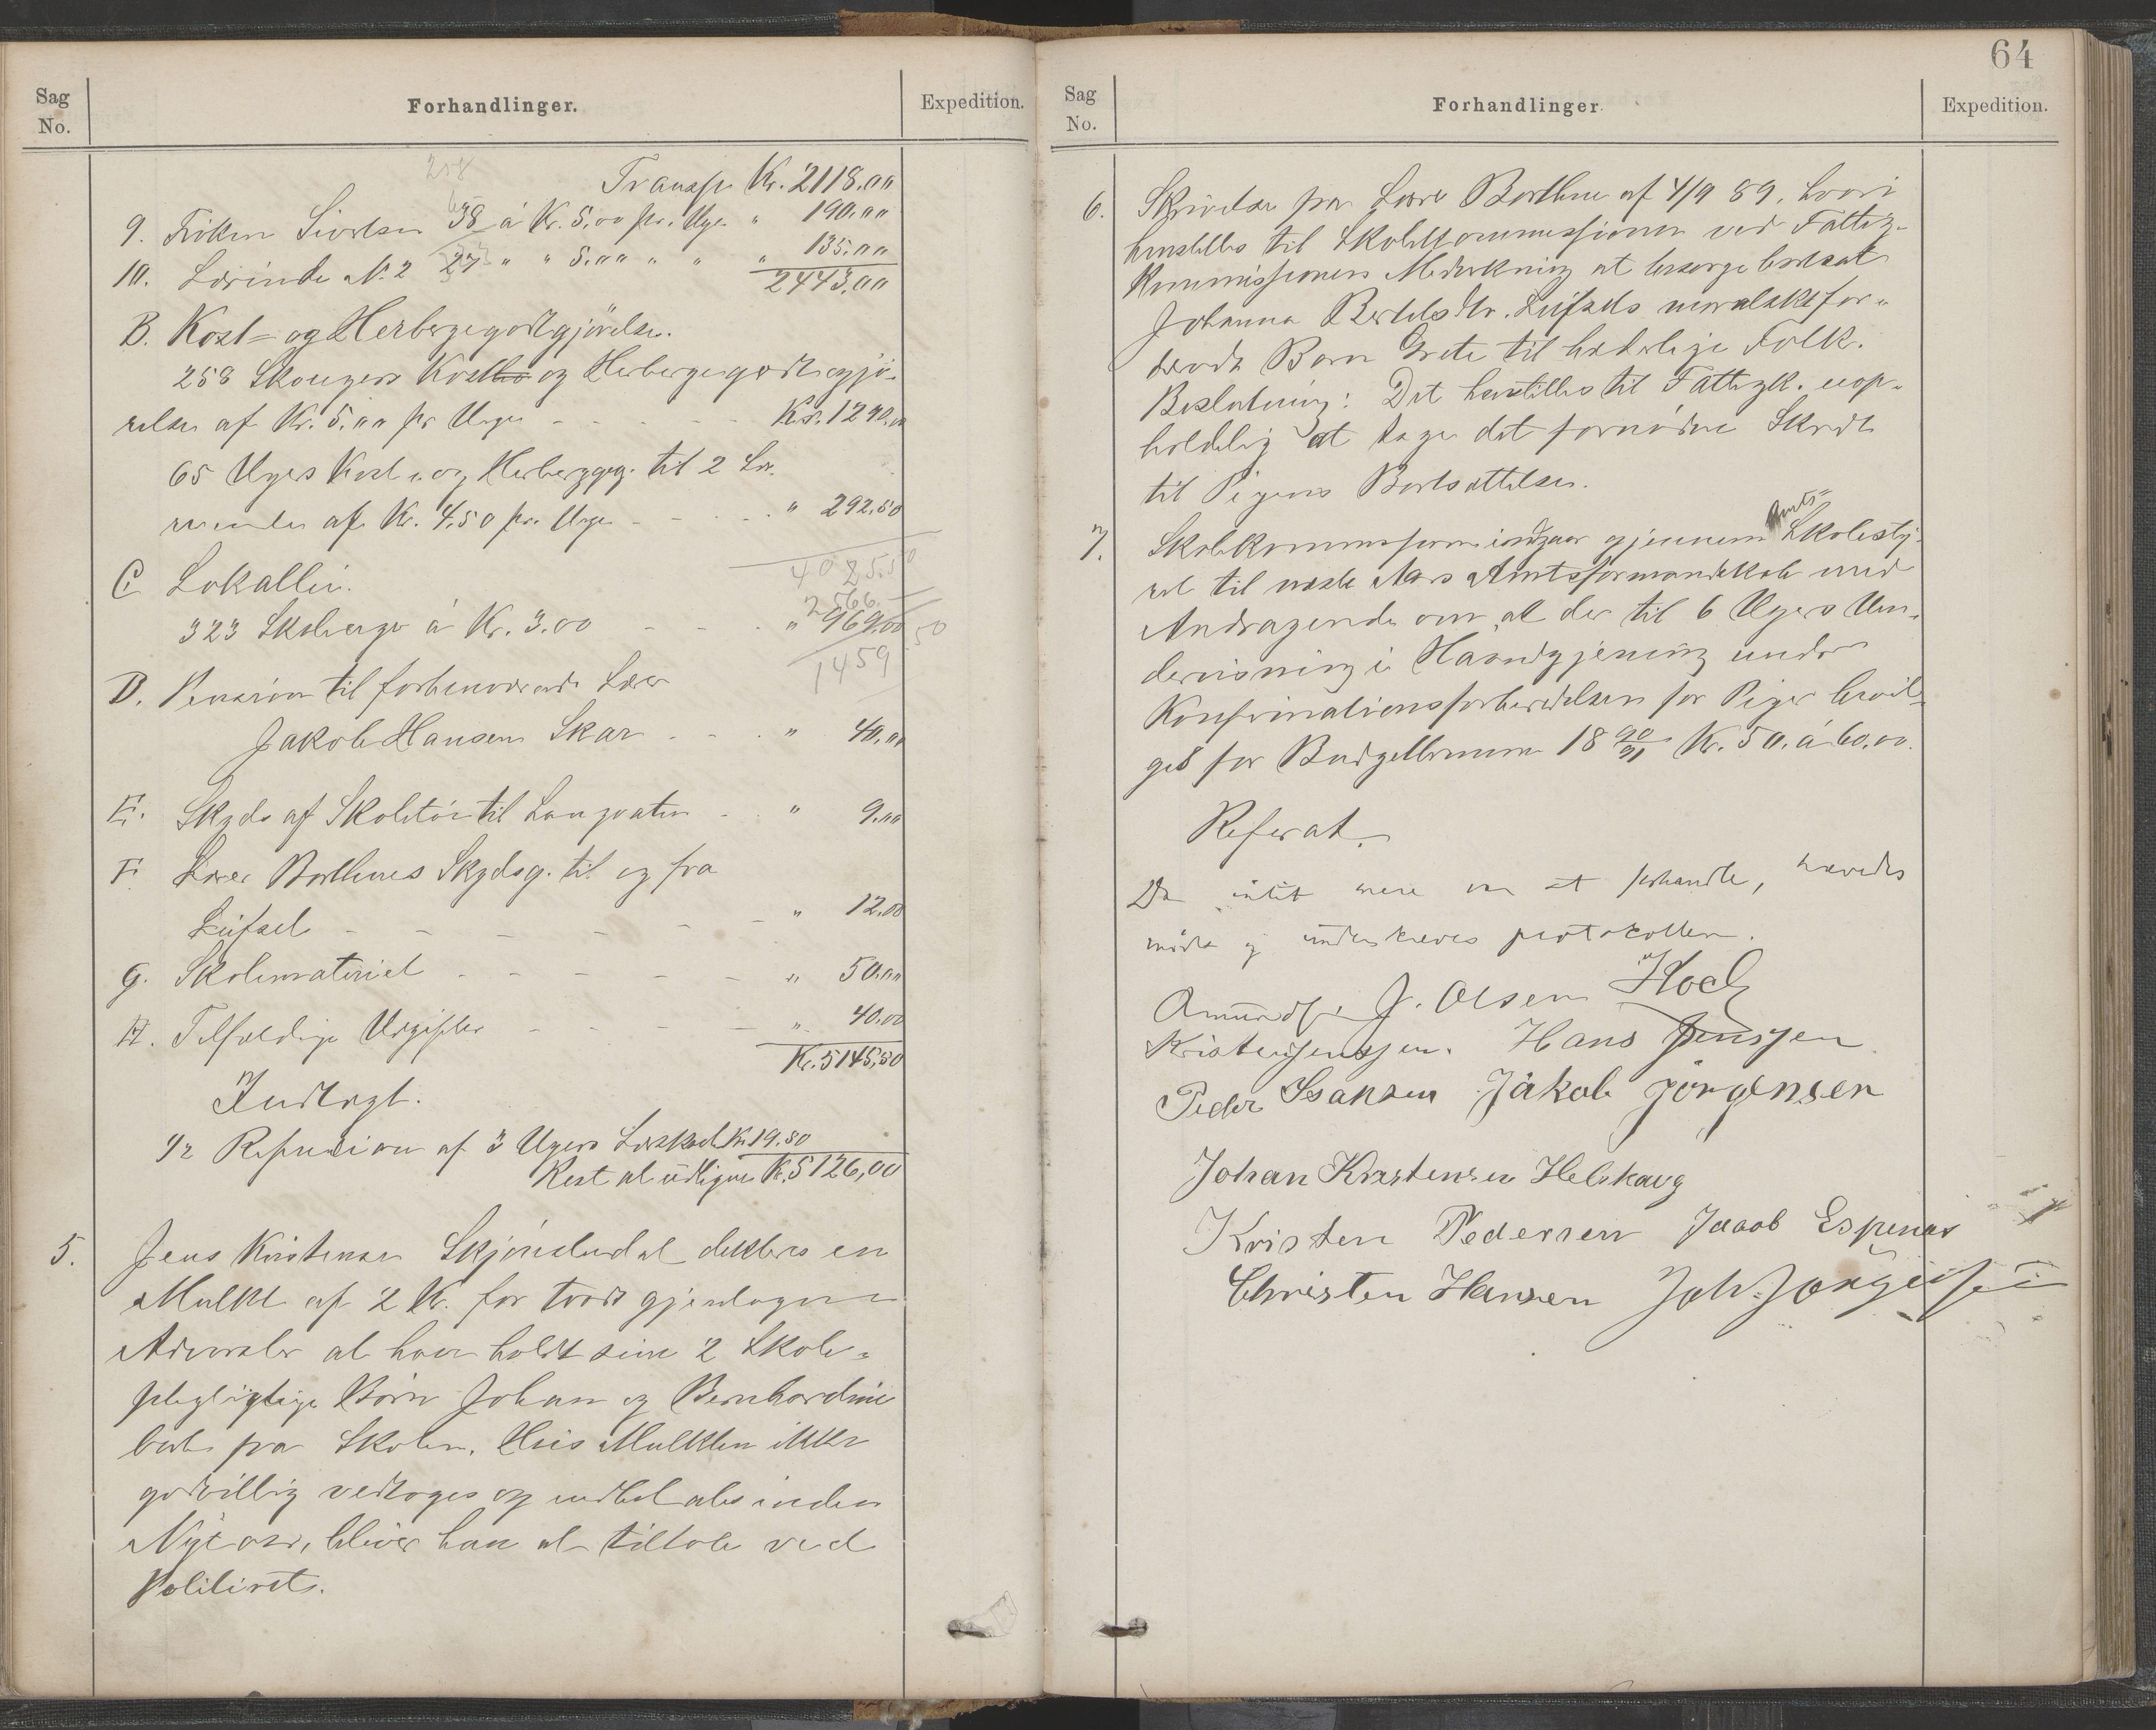 Sag
No.
Forhandlinger.
Expedition.
258
Transp. Kr. 2118.00
9. Fröken Sivertsen 38 á Kr. 5.00 pr. Uge " 190.00
10. Lærinde N. 2 27 " " 5.00 " " " 135.00
2443.00
B. Kost- og Herbergegodtgjörelse.
258 Skougers Kost og Herbergegodtgjö-
relse af Kr. 5.00 pr Uge - - - Kr. 1290.00
65 Ugers Kost- og Herbergeg. til 2 Læ-
rerinder af Kr. 4.50 pr. Uge - - - " 292.50
4025.50
C Lokalleie.
2566.
323 Skoleuger á Kr. 3.00 - - - " 969.00
1459.50
D. Pension til forhenværende Lærer
Jakob Hansen Skar - - - " 40.00
E. Skyds af Skoletöi til Langvatn - - " 9.00
F. Lærer Borthnes Skydsg. til og fra
Leifsel - - - - - - " 12.00
G. Skolemateriel - - - - - " 50.00
H. Tilfældige Udgifter - - - - " 40.00
Kr. 5145,50
Indtægt.
1/2 Refusion af 3 Ugers Kr. 19.50
Rest at udligne Kr. 5126,00
5. Jens Kristensen Skjönsludal dikteres en
Mulkt af 2 Kr. for trods gjentagne
Advarsler at have holdt sine 2 Skole-
pligtige Börn Johan og Bernhardine
borte fra Skolen. Hvis Mulkten ikke
godvillig vedtages og indbetales inden
Nytaar, bliver han at tiltale ved
Politiret.
64
Sag
No.
Forhandlinger
Expedition.
6. Skrivelse fra Lærer Borthne af 4/9 89, hvori
henstilles til Skolekommissionen ved Fattig-
kommissionens Medvirkning at besörge bortsat
Johanna Bertelsdtr. Leifsels moralskfor-
dærvede Barn Grete til hæderlige Folk.
Beslutning: Det henstilles til Fattigk. uop-
holdelig at tage det fornödne Skridt
til Pigens Bortsættelse.
7. Skolekommissionen indgaar gjennem Amts-Skolesty-
ret til næste Aars Amtsformandskab med
Andragende om, at der til 6 Ugers Un-
dervisning i Haandgjerning under
Konfirmationsforberedelsen for Piger bevil-
ges for Budgetterminen 18 90/91 Kr. 50. á 60.00.
Referat.
Da intet mere var at forhandle, hævedes
mödet og underskreves protokollen.
J. Olsen Hoel
Kristen Jenssen. Hans Jenssen
Peder Isaksen Jakob Jörgensen
Johan Kristensen Helskaug
Kristen Pedersen Jacob Espenæs
Christen Hansen Joh. Jörgensen